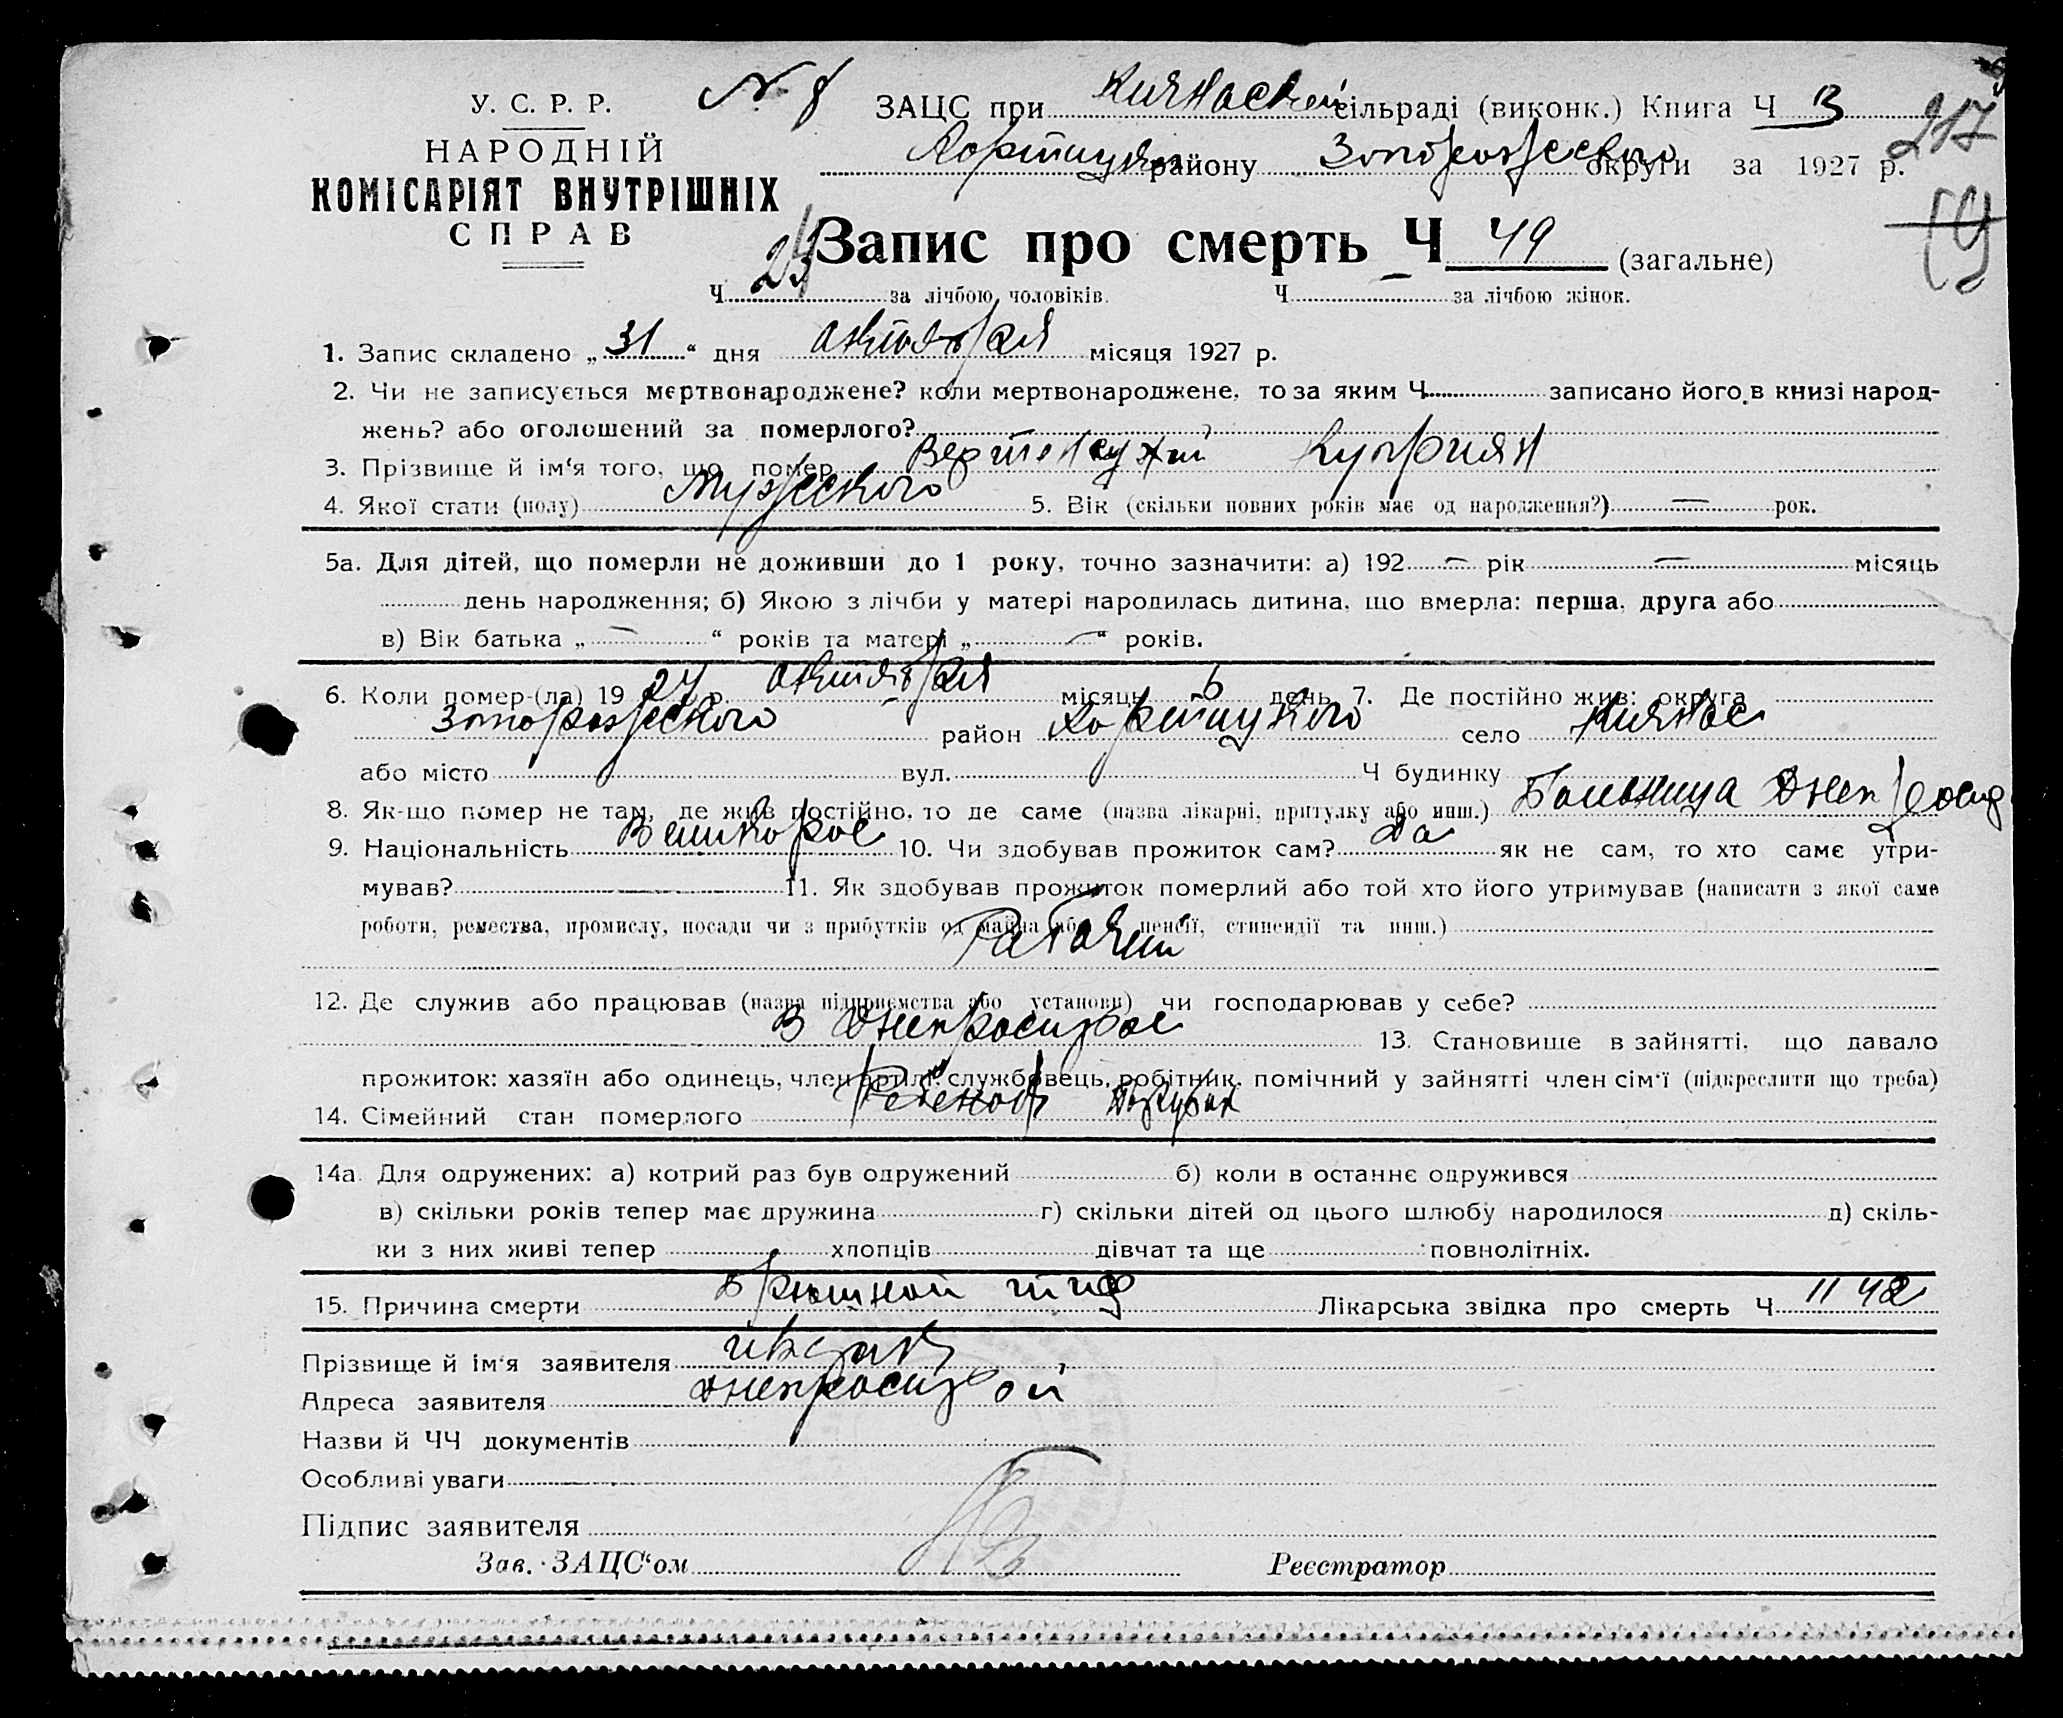 У. С. Р. Р.
НАРОДНІЙ
КОМІСАРІЯТ ВНУТРІШНІХ
СПРАВ
N 8
ЗАЦС при Кичкасской сільраді (виконк.) Книга Ч 3
217
Хортицк района Запорожсского округи за 1927 р.
19
Запис про смерть Ч 49 (загальне)
Ч за лічбою чоловіків. Ч за лічбою жінок.
1. Запис складено „31“ дня октября місяця 1927 р.
2. Чи не записується мертвонароджене? коли мертвонароджене, то за яким Ч записано його в книзі народ-
жень? або оголошений за померлого?
3. Прізвище й ім‘я того, що помер Куприян
4. Якої стати (полу) Мужеского 5. Вік (скільки повних років має од народження?) — рок.
5а. Для дітей, що померли не доживши до 1 року, точно зазначити: а) 192 — рік — місяць
день народження; б) Якою з лічби у матері народилась дитина, що вмерла: перша, друга або
в) Вік батька „ — “ років та матері „ — “ років.
6. Коли помер-(ла) 1927 р. октября місяць 6 день 7. Де постійно жив: округа
Запорожеского район Хортицкого село Кичкас
або місто вул. Ч будинку
8. Як-що помер не там, де жив постійно, то де саме (назва лікарні, притулку або инш.) Больница
9. Національність Великорос 10. Чи здобував прожиток сам? Да як не сам, то хто саме утри-
мував? 11. Як здобував прожиток померлий або той хто його утримував (написати з якої саме
роботи, ремества, промислу, посади чи з прибутків од майна або з пенсії, стипендії та инш.)
Рабочий
12. Де служив або працював (назва підприємства або установи) чи господарював у себе?
В Днепрострое 13. Становище в зайнятті, що давало
прожиток: хазяїн або одинець, член артілі, службовець, робітник, помічний у зайнятті член сім‘ї (підкреслити що треба)
14. Сімейний стан померлого
14а. Для одружених: а) котрий раз був одружений б) коли в останнє одружився
в) скільки років тепер має дружина г) скільки дітей од цього шлюбу народилося д) скіль-
ки з них живі тепер хлопців дівчат та ще повнолітніх.
15. Причина смерти Брюшной тиф Лікарська звідка про смерть Ч 1142
Прізвище й ім‘я заявителя
Адреса заявителя Днепрострой
Назви й ЧЧ документів
Особливі уваги
Підпис заявителя
Зав. ЗАЦС‘ом Реєстратор